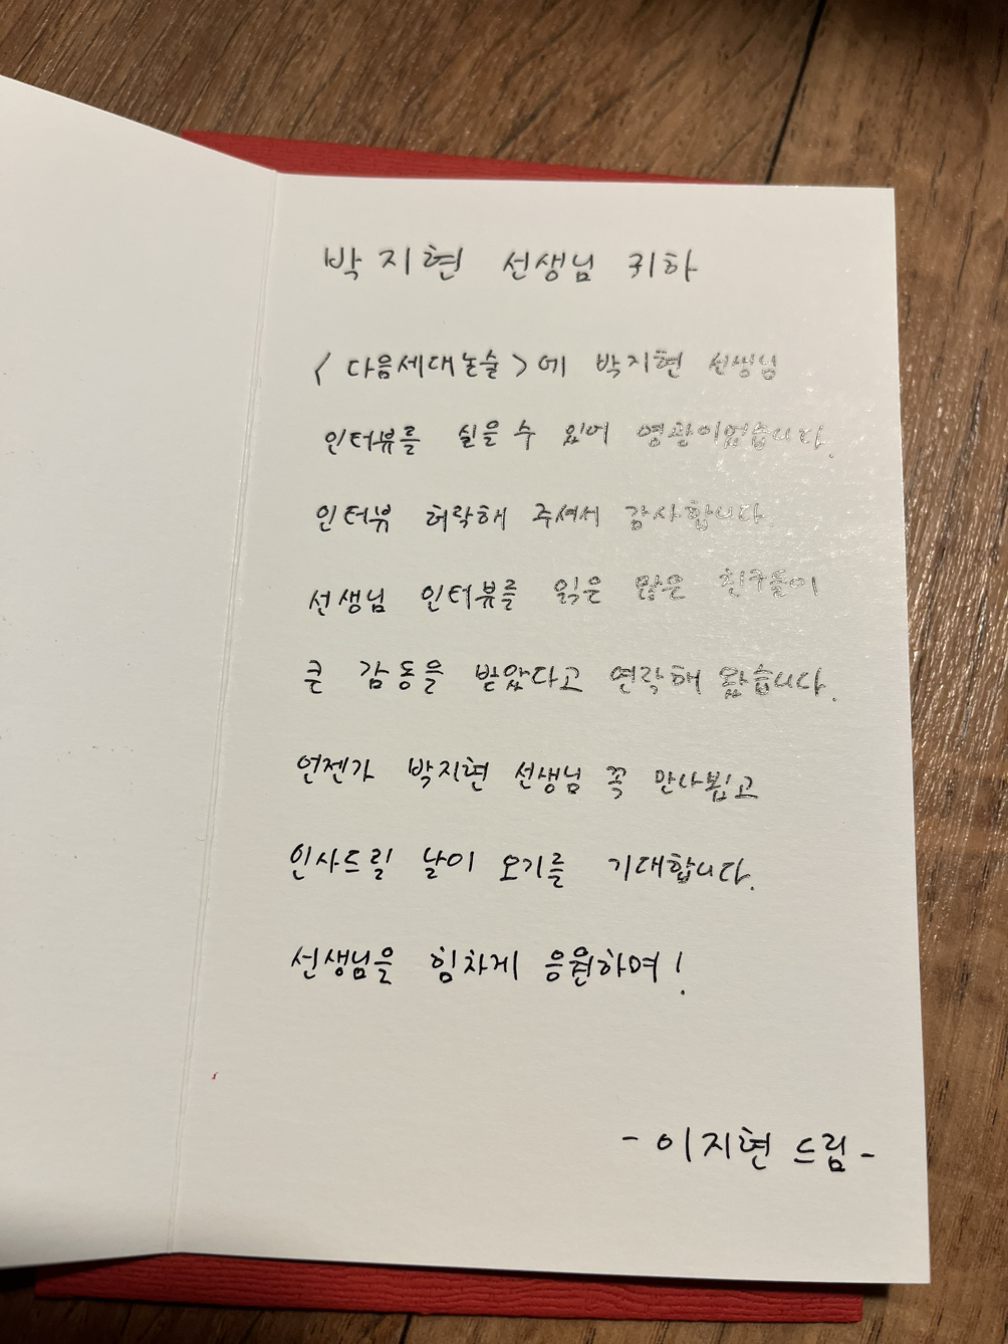 박지현 선생님 귀하
<다음세대논술>에 박지현 선생님
인터뷰를 실을 수 있어 영광이었습니다.
인터뷰 허락해 주셔서 감사합니다
선생님 인터뷰를 읽은 많은 친구들이
큰 감동을 받았다고 연락해 왔습니다.
언젠가 박지현 선생님 꼭 만나뵙고
인사드릴 날이 오기를 기대합니다.
선생님을 힘차게 응원하며!
- 이지현 드림 -